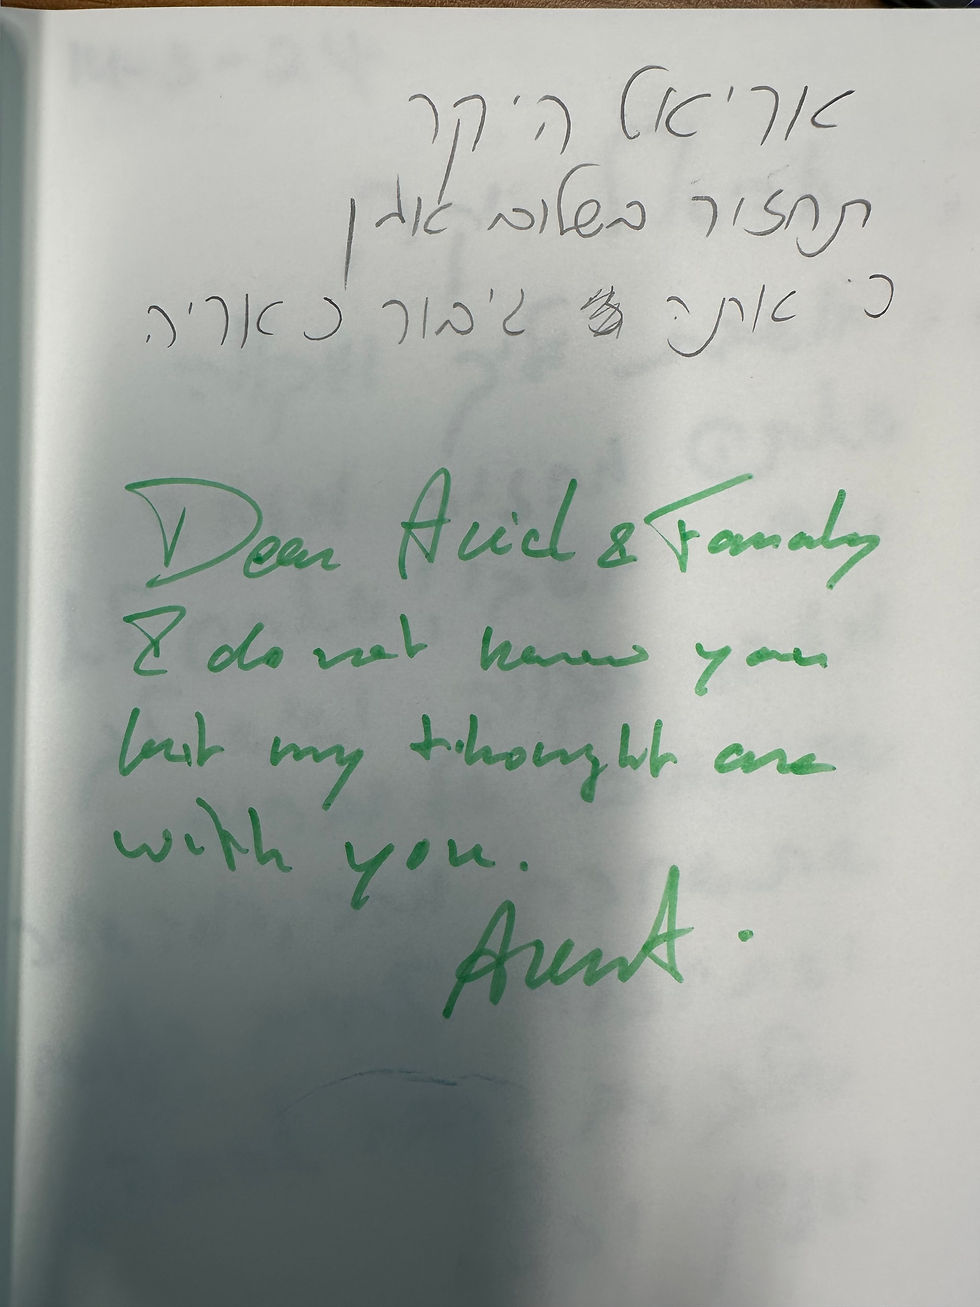 אריאל היקר
תחזור בשלום אמן
כי אתה גיבור כאריה
Dear Ariel & Family
I do not know you
but my thought are
with you.